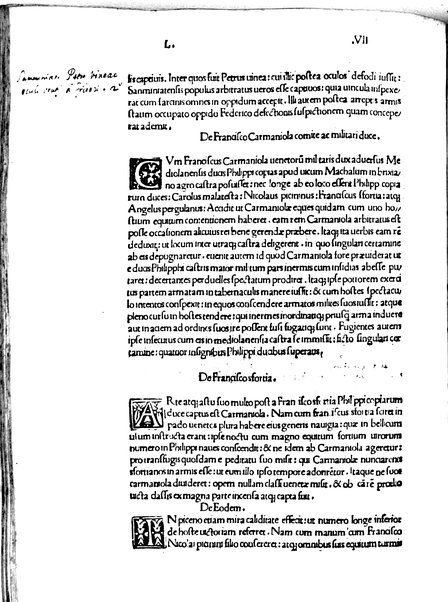 L. .VII
lis captiuis. Inter quos fuit Petrus uinea: cui illic postea oculos defodi iussit:
Sanminiatensis populus arbitratus ueros esse captiuos: quia uincula inspexe/
rat cum farcinis omnes in oppidum accepit. Illi autem postea arreptis armis
statum occupato oppido Federico defectionis suspictionem quam concepe/
rat ademit.
De Francisco Carmaniola comite ac militari duce.
CVm Franciscus Carmaniola uenetorum militaris dux aduersus Me
diolanensis duos Philippi copias apud uicum Machalum in brixia/
no agro castra posuisset: nec longe ab eo loco essent Philippi copia
rum duces: Carolus malatesta: Nicolaus picininus: Franciscus sfortia: atqȝ
Angelus pergulanus: Accidit ut Carmaniolæ eques quidam cum uno ho/
stium equitum contentionem haberet. eam rem Carmaniola arbitratus est
posse occasionem alicuius rei bene gerendæ præbere. Itaqȝ ita uerbis eam rē
deduxit: ut locum inter utraqȝ castra deligerent. in quo singulari certamine
ab eis depugnaretur. euenit autem id quod Carmaniola fore præuiderat ut
e duos Philippi castris maior militum pars inermis cum insidias abesse pu/
taret: decertantes perduelles spectatum prodiret. Itaqȝ ipse potiorem exerci
tus partem armatam in tabernaculis manere iussit: & cum hostes spectacu/
lo intentos conspexit: in equos conscendere armatos milites suos iussit: atque
pleno cursu in hostes tendere: qui inermes inordinatiqȝ priusqȝ arma induere
aut in aciem ad ordines suos ire possent fusi fugatiqȝ sunt. Fugientes autem
ipse insecutus cum eis in mediolanensia castra se immisit: sicqȝ singulari cer
tamine: quatuor insignibus Philippi ducibus superauit,
De Francisco sfortia.
ARte atqȝ astu suo multo post a Francisco sfortia Philippi copiarum
duce captus est Carmaniola. Nam cum franciscus sfortia foret in
pado uenetis plura habere eius generis nauigia: quæ in bellicum
usum instructa erant: ipse noctu cum magno equitum fortium uirorum
numero in Philippi naues conscendit: & ne idem ab Carmaniola ageretur:
pro transfugis quosdam e peditatu suo misit: qui Carmaniolæ nunciarent
sfortianos in armis esse: ut eum illo ipso tempore adoriretur. Itaque ne suos
carmaniola diuideret: opem nullam classi uenetæ misit, & ob cā rē produ
ucta classis ex magna parte incensa atqȝ capta fuit.
De Eodem.
IN piceno etiam mira caliditate effecit: ut numero longe inferior
de hoste uictoriam referret. Nam cum manum cum Francisco
Nicolai picinini filio consereret: atqȝ omnibus suis equitum turmis